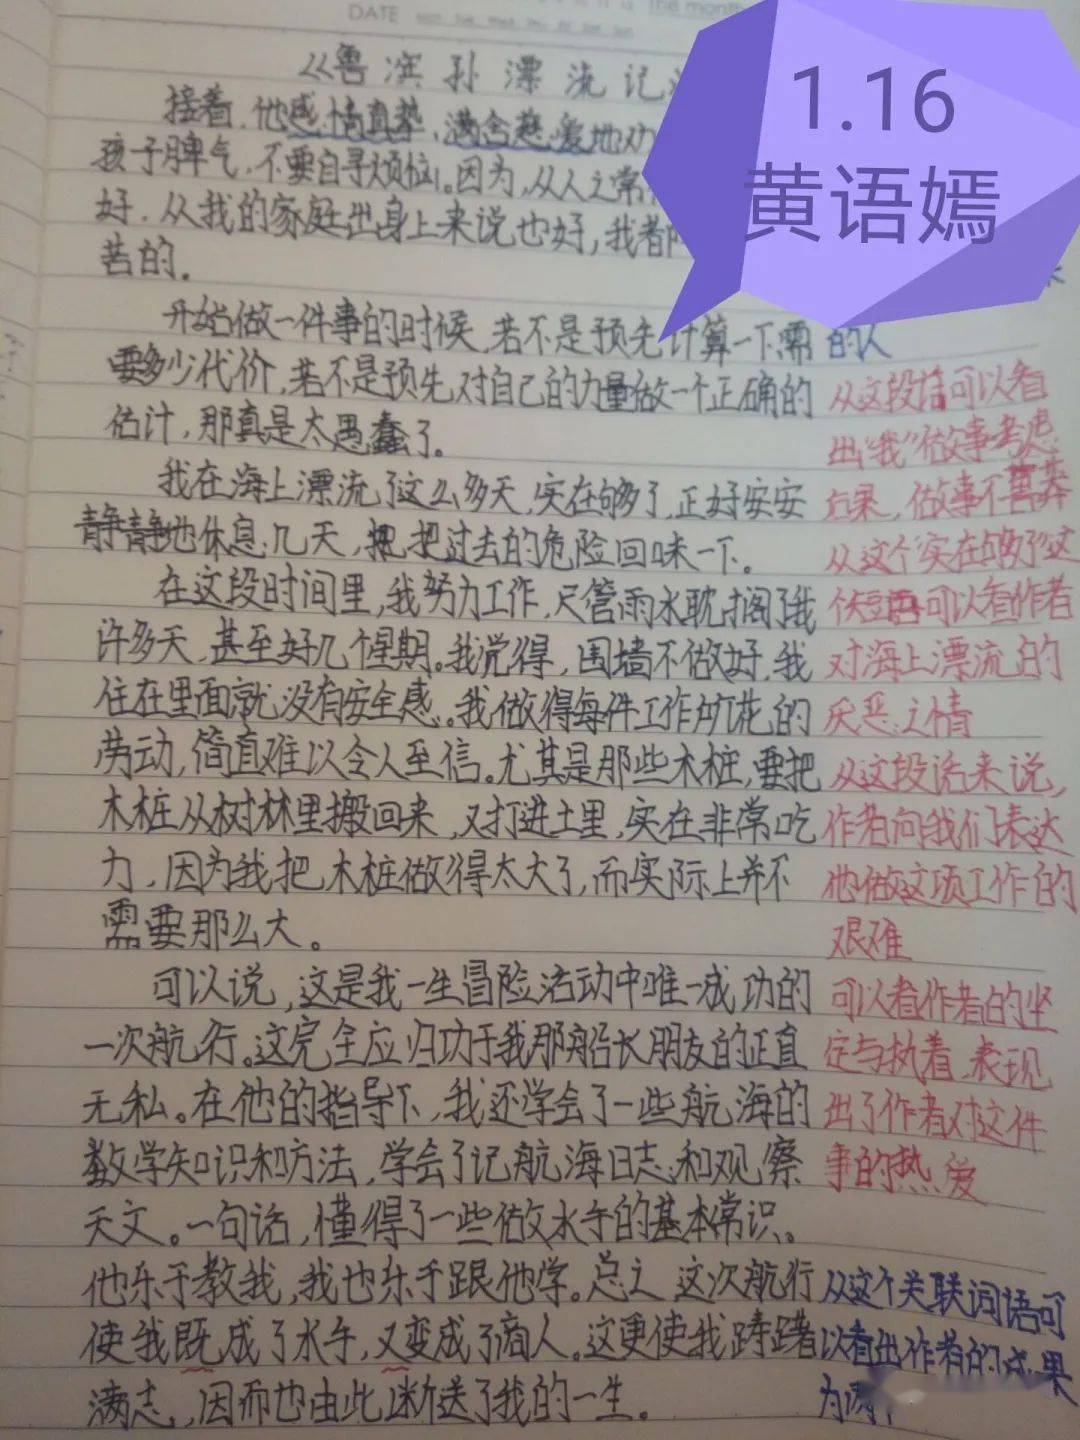 DATE
the month
1.16
黄语嫣
《鲁滨孙漂流记
接着,他感情真挚,满含慈爱地劝
孩子脾气,不要自寻烦恼。因为,从人之常
好,从我的家庭出身上来说也好,我都
苦的。
开始做一件事的时候,若不是预先计算一下需
要多少代价,若不是预先对自己的力量做一个正确的
估计,那真是太愚蠢了。
我在海上漂流了这么多天,实在够了,正好安安
静静地休息几天,把过去的危险回味一下。
在这段时间里,我努力工作,尺管雨水耽搁了我
许多天,甚至好几个星期。我觉得,围墙不做好,我
住在里面就没有安全感。我做得每件工作所花的
劳动,简直难以令人至信。尤其是那些木桩,要把
木桩从树林里搬回来,又打进土里,实在非常吃
力,因为我把木桩做得太大了,而实际上并不
需要那么大。
可以说,这是我一生冒险活动中唯一成功的
一次航行。这完全应归功于我那船长朋友的正直
无私。在他的指导下,我还学会了一些航海的
数学知识和方法,学会了记航海日志和观察
天文。一句话,懂得了一些做水手的基本常识。
他乐于教我,我也乐于跟他学。总之,这次航行
使我既成了水手,又变成了商人。这更使我踌躇
满志,因而也由此断送了我的一生。
的人
从这段话可以看
出“我”做事考虑
后果,做事不莽
从这个“实在够了”这
个短语可以看作者
对海上漂流的
厌恶之情
从这段话来说,
作者向我们表达
他做这项工作的
艰难
可以看作者的坚
定与执着,表现
出了作者对这件
事的热爱
从这个关联词语可
以看出作者的成果
为两个